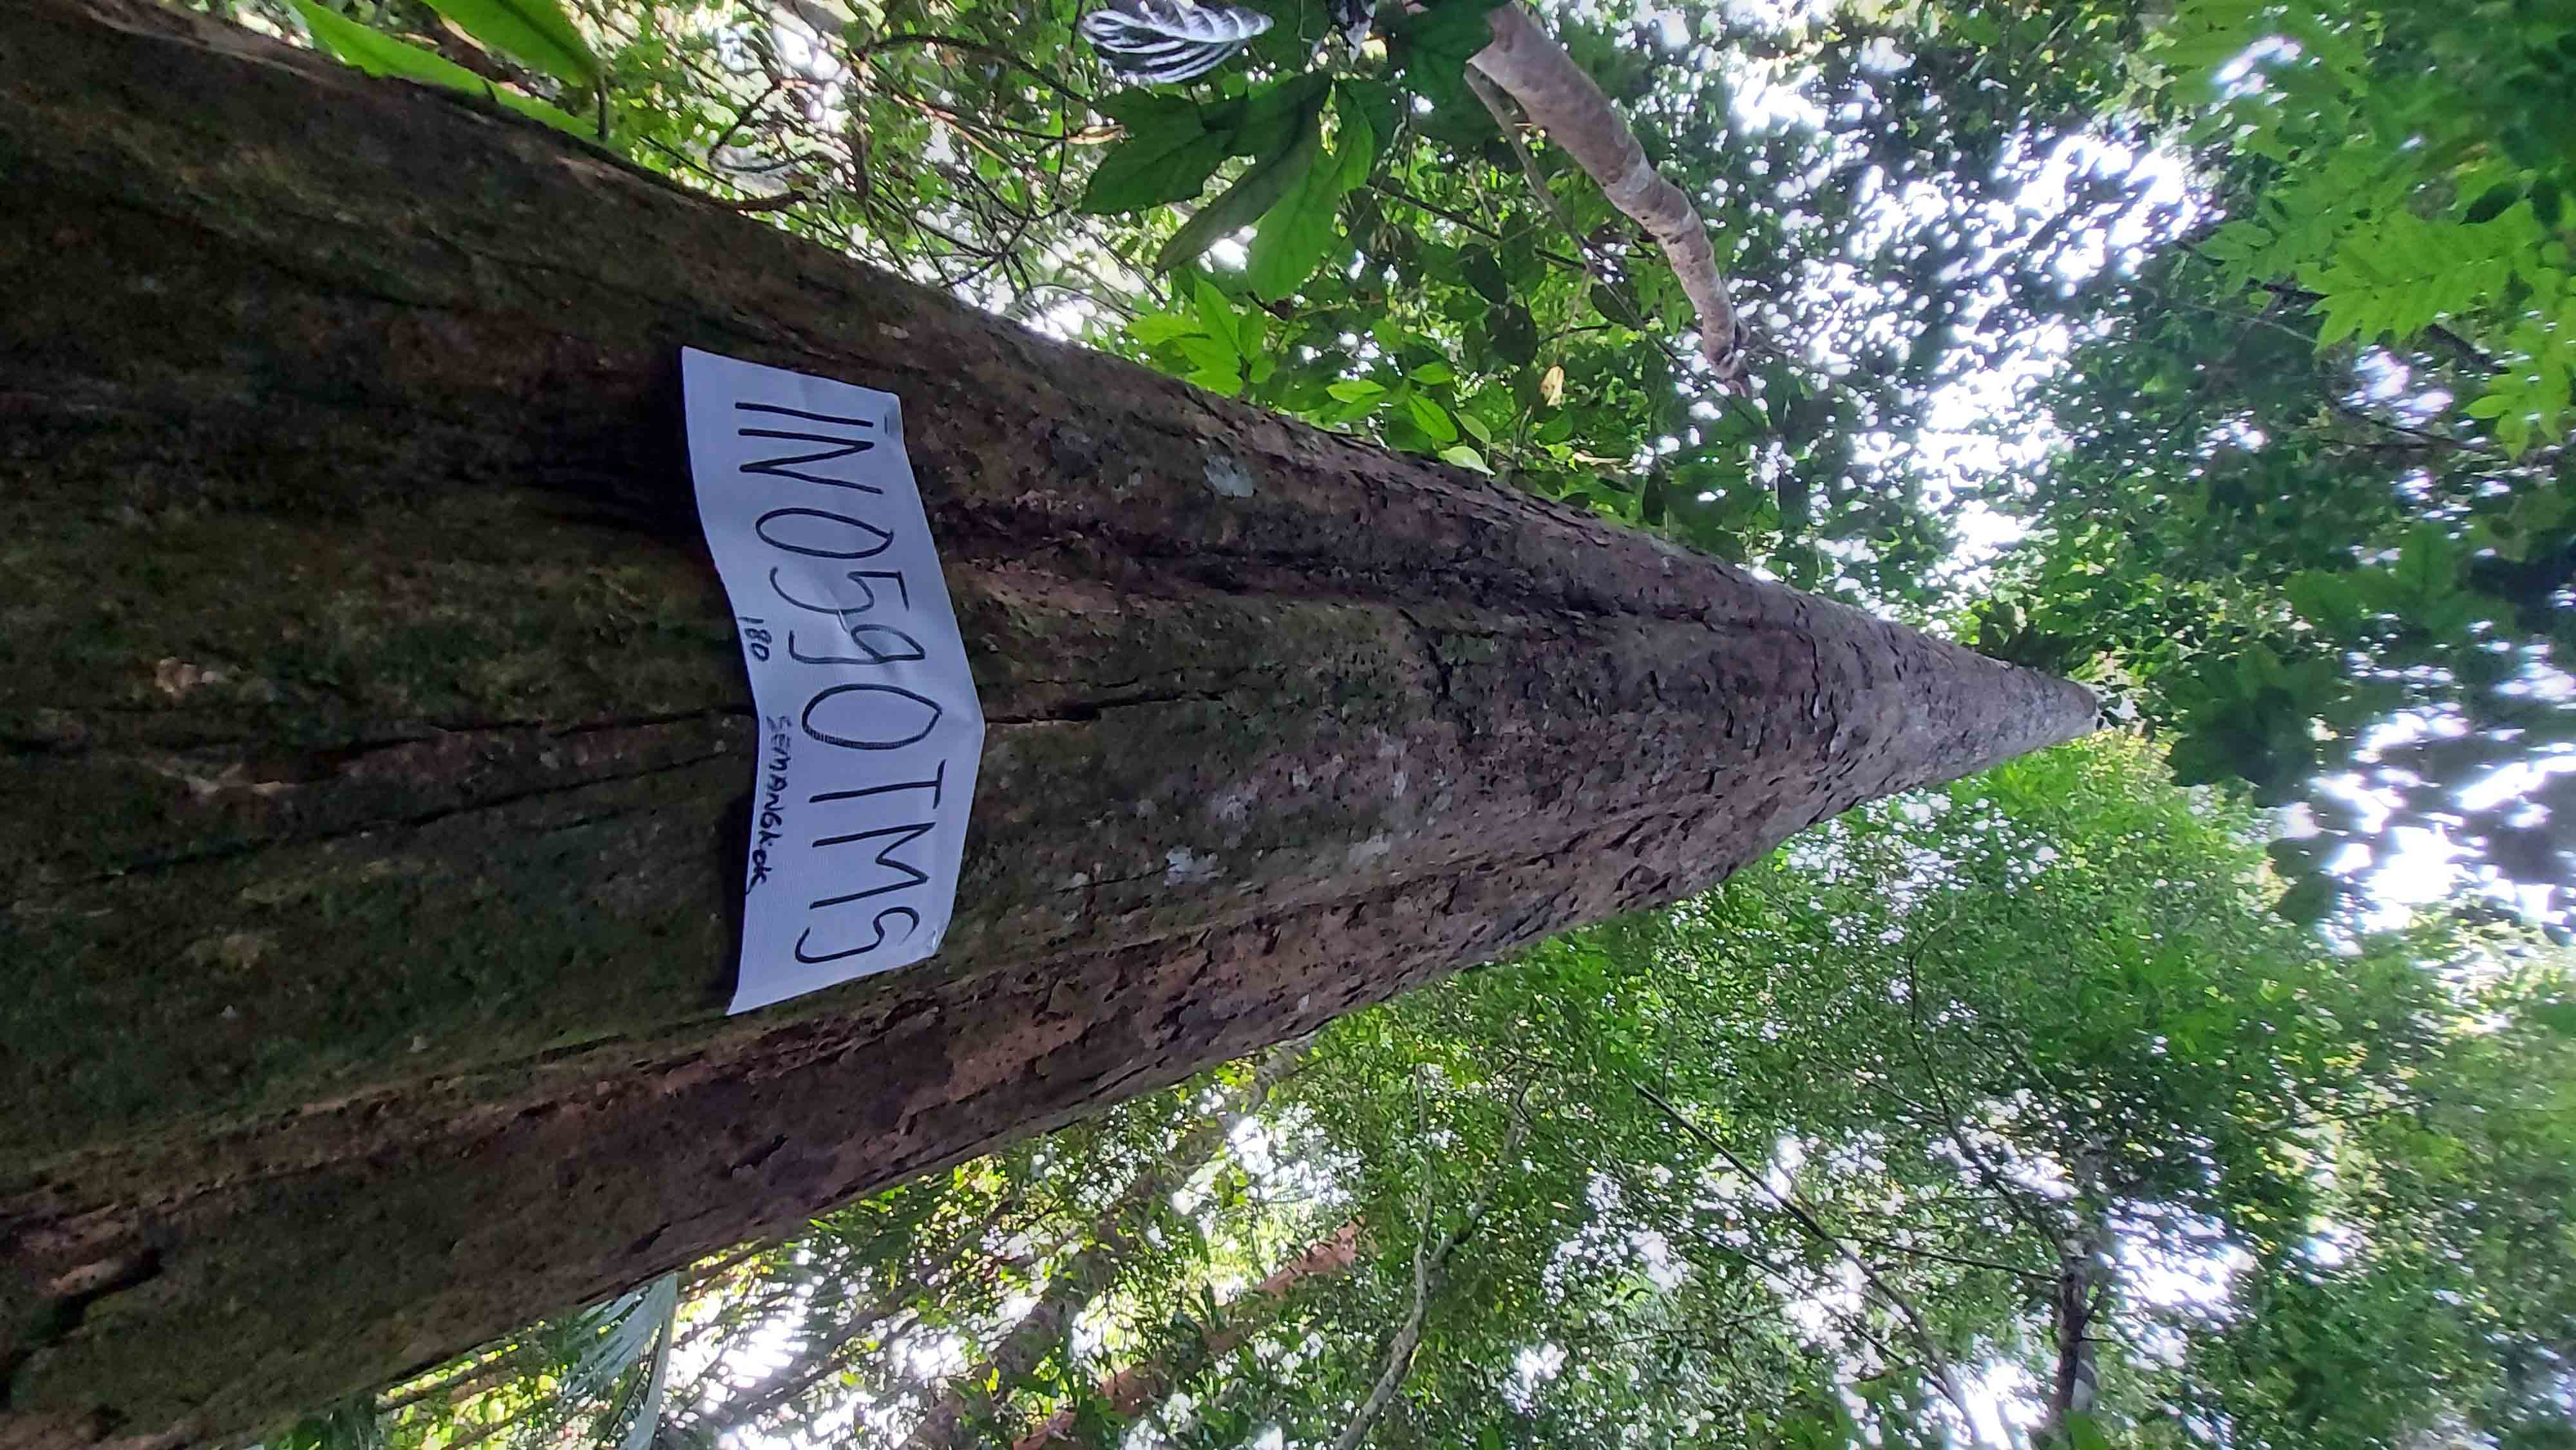 IN0590TMS
180 SEMANGKOK